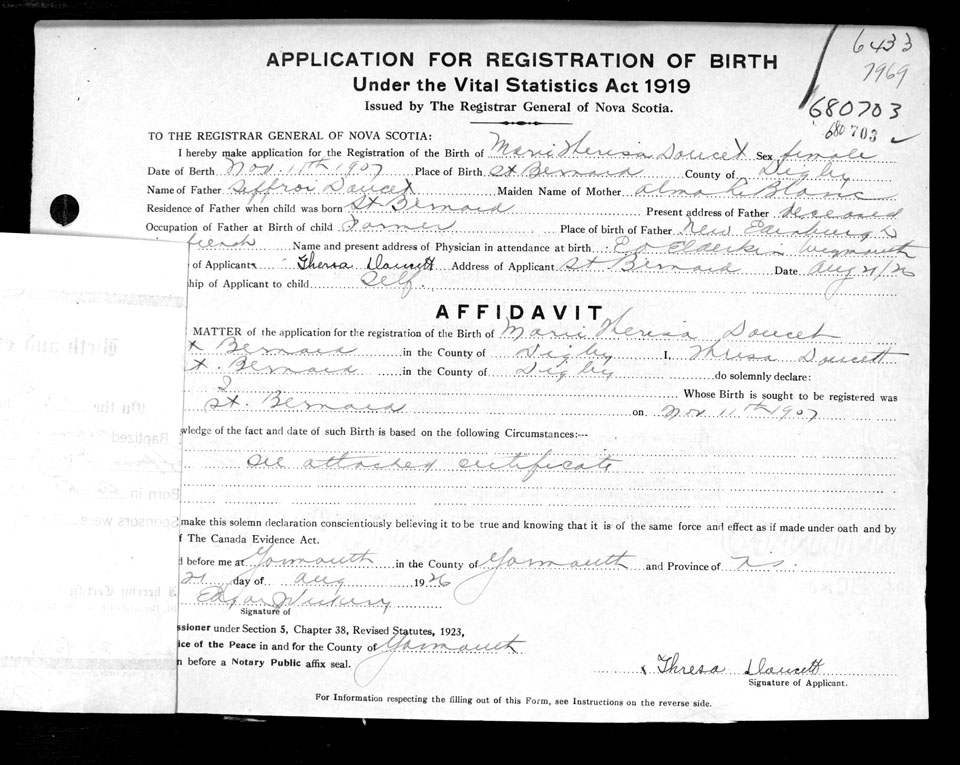 6433
7969
680703
680 703
APPLICATION FOR REGISTRATION OF BIRTH
Under the Vital Statistics Act 1919
Issued by The Registrar General of Nova Scotia.
TO THE REGISTRAR GENERAL OF NOVA SCOTIA:
I hereby make application for the Registration of the Birth of Marie Theresa Doucet Sex female
Date of Berth Nov. 11th 1907 Place of Birth St Bernard County of Digby
Name of Father Jeffroi Doucet Maiden Name of Mother Alma Le Blanc
Residence of Father when child was born St. Bernard Present address of Father deceased
Occupation of Father at Birth of child Farmer Place of birth of Father New Edinburgh
french Name and present address of Physician in attendance at birth E D Elderkin Weymouth
of Applicant Theresa Doucett Address of Applicant St Bernard Date Aug 21/26
hip of Applicant to child Self.
AFFIDAVIT
MATTER of the application for the registration of the Birth of Marie Theresa Doucet
t Bernard in the County of Digby I, Theresa Doucett
t. Bernard in the County of Digby do solemnly declare:
I Whose Birth is sought to be registered was
St. Bernard on Nov 11th 1907
wledge of the fact and date of such Birth is based on the following Circumstances:--
See attached certificate
make this solemn declaration conscientiously believing it to be true and knowing that it is of the same force and effect as if made under oath and by
f The Canada Evidence Act.
d before me at Yarmouth in the County of Yarmouth and Province of N.S.
21 day of Aug 1926
Edgar Vickery
Signature of
ssioner under Section 5, Chapter 38, Revised Statutes, 1923,
ice of the Peace in and for the County of Yarmouth
n before a Notary Public affix seal.
x Thresa Doucett
Signature of Applicant.
For Information respecting the filling out of this Form, see Instructions on the reverse side.